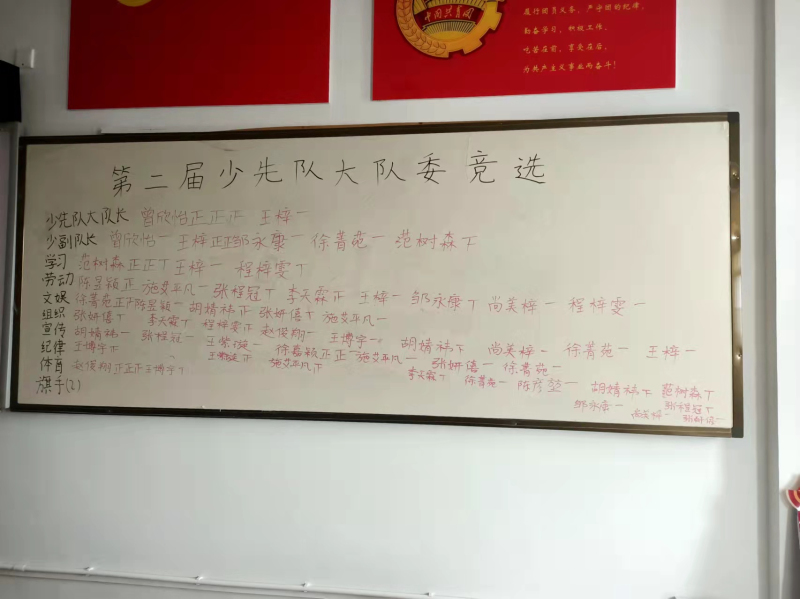 履行团员义务，严守团的纪律，
勤奋学习，积极工作，
吃苦在前，享受在后，
为共产主义事业而奋斗！
中国共青团
第二届少先队大队委竞选
少先队大队长 曾欣怡正正正 王梓一
少副队长 曾欣怡一 王梓正正 邹永康一 徐菁苑一 范树森丅
学习 范树森正正丅 王梓一 程梓雯丅
劳动 陈昱颖正 施艾平凡一 张程冠丅 李天霖正 王梓一 邹永康丅 尚美梓一 程梓雯一
文娱 徐菁苑正 陈昱颖一 胡婧祎正 张妍僖丅 施艾平凡一
组织 张妍僖丅 李天霖丅 程梓雯正 赵俊翔一 王博宇一 胡婧祎下 尚美梓一 徐菁苑一 王梓一
宣传 胡婧祎一 张程冠一 徐嘉颖正正一 施艾平凡一 张妍僖一 徐菁苑一
纪律 王博宇正 施艾平凡下
体育 赵俊翔正正正 王博宇丅 李天霖丅 徐菁苑一 陈彦堃一 胡婧祎下 范树森丅
旗手(2) 邹永康一 张程冠丅
尚美梓一 张妍僖一